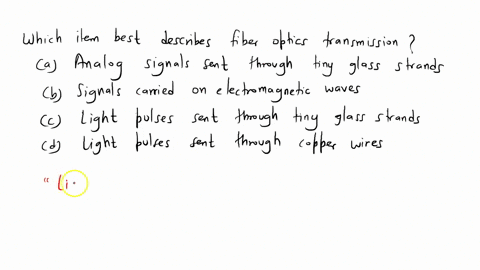 Which item best describes fiber optics transmission ?
(a) Analog signals sent through tiny glass strands
(b) Signals carried on electromagnetic waves
(c) Light pulses sent through tiny glass strands
(d) Light pulses sent through copper wires
" Li